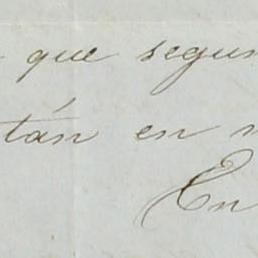 que segun
tán en
En